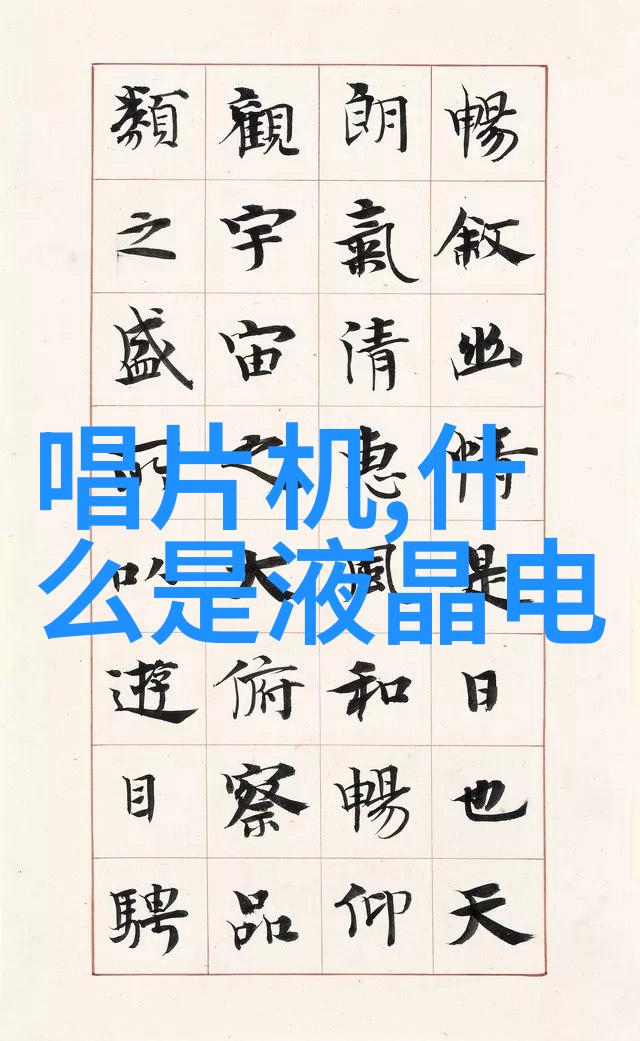 唱片机,什
么是液晶电
暢敘幽情是日也天
朗氣清惠風和暢仰
觀宇宙之大俯察品
類之盛所以遊目騁